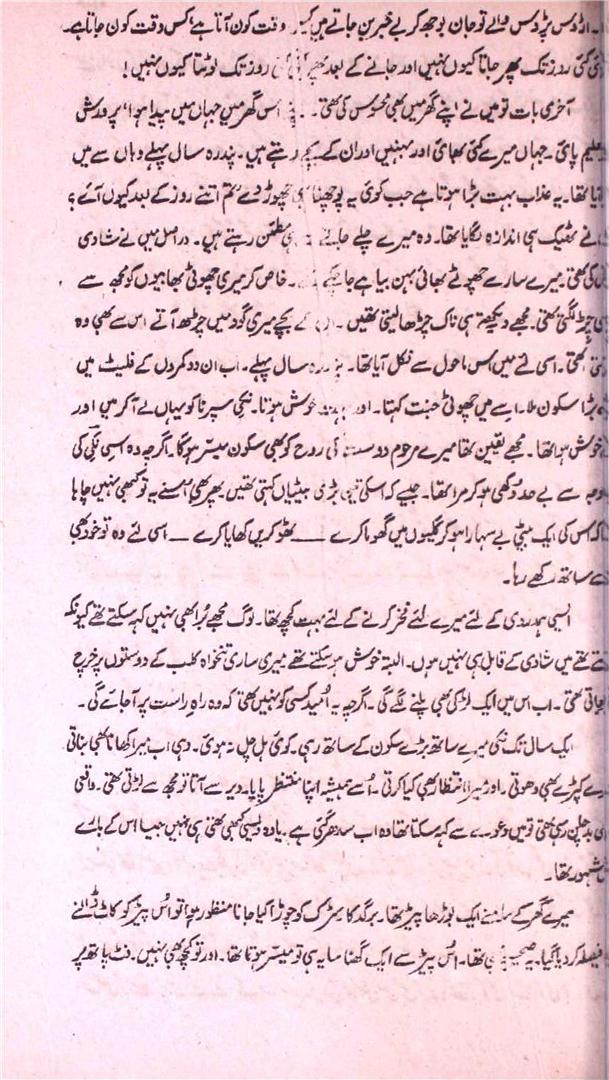 اڑوس پڑوس والے تو جان بوجھ کر بے خبر بن جاتے ہیں وقت کون آتا ہے، کس وقت کون جاتا ہے۔
کئی روز تک پھر جاتا کیوں نہیں اور جانے کے بعد پھر روز تک لوٹتا کیوں نہیں!
آخری بات تو میں نے اپنے گھر میں بھی محسوس کی تھی۔ اس گھر میں جہاں میں پیدا ہوا، پرورش
پائی۔ جہاں میرے کئی بھائی اور بہنیں اور ان کے بچے رہتے ہیں۔ پندرہ سال پہلے وہاں سے میں
تھا۔ یہ عذاب بہت بڑا ہوتا ہے جب کوئی یہ پوچھنا ہی چھوڑ دے تم اتنے روز کے بعد کیوں آئے؟
نے ٹھیک ہی اندازہ لگایا تھا۔ وہ میرے چلے جانے ہی مطمئن رہتے ہیں۔ دراصل میں نے شادی
کی تھی۔ میرے سارے چھوٹے بھائی بہن بیاہے جا چکے خاص کر میری چھوٹی بھابیوں کو مجھ سے
چڑ لگتی تھی۔ مجھے دیکھتے ہی ناک چڑھا لیتی تھیں۔ کے بچے میری گود میں چڑھ آتے اس سے بھی وہ
تھی۔ اسی لئے میں اس ماحول سے نکل آیا تھا۔ پندرہ سال پہلے۔ اب ان دو کمروں کے فلیٹ میں
بڑا سکون ملا۔ اسے میں چھوٹی جنت کہتا۔ اور بے حد خوش ہوتا۔ نکی سپرنا کو یہاں لے آ کر میں اور
خوش ہوا تھا۔ مجھے یقین تھا میرے مرحوم دوست کی روح کو بھی سکون میسر ہوگا۔ اگرچہ وہ اسی نکی کی
وجہ سے بے حد دکھی ہو کر مرا تھا۔ جیسے کہ اسکی تین بڑی بیٹیاں کہتی تھیں پھر بھی اسنے یہ تو کبھی نہیں چاہا
کہ اس کی ایک بیٹی بے سہارا ہو کر گلیوں میں گھوما کرے — ٹھوکریں کھایا کرے — اسی لئے وہ تو خود بھی
ساتھ رکھے رہا۔
ایسی ہمدردی کے لئے میرے لئے فخر کرنے کے لئے بہت کچھ تھا۔ لوگ مجھے برا بھی نہیں کہہ سکتے تھے کیونکہ
تھے میں شادی کے قابل ہی نہیں ہوں۔ البتہ خوش ہو سکتے تھے میری ساری تنخواہ کلب کے دوستوں پر خرچ
جاتی تھی۔ اب اس میں ایک لڑکی بھی پلنے لگے گی۔ اگرچہ یہ امید کسی کو نہیں تھی کہ وہ راہِ راست پر آ جائے گی۔
ایک سال تک نکی میرے ساتھ بڑے سکون کے ساتھ رہی۔ کوئی ہل چل نہ ہوئی۔ وہی اب میرا کھانا بھی بناتی
میرے کپڑے بھی دھوتی۔ اور میرا انتظار بھی کیا کرتی۔ اُسے ہمیشہ اپنا منتظر پایا۔ دیر سے آتا تو مجھ سے لڑتی تھی۔ واقعی
بدچلن رہی تھی تو میں دعوے سے کہہ سکتا تھا وہ اب سدھر گئی ہے۔ یا وہ ویسی کبھی تھی ہی نہیں جیسا اس کے بارے
مشہور تھا۔
میرے گھر کے سامنے ایک بوڑھا پیڑ تھا۔ برگد کا سڑک کو چوڑا کیا جانا منظور ہوا تو اُس پیڑ کو کاٹ ڈالنے
فیصلہ کر دیا گیا۔ صحیح تھا۔ اُس پیڑ سے ایک گھنا سایہ ہی تو میسر ہوتا تھا۔ اور تو کچھ بھی نہیں۔ فٹ پاتھ پر